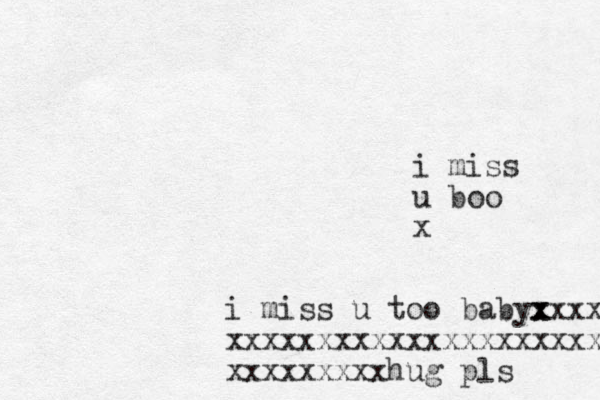 i miss
u boo
x
i miss u too babyxxxx
xxxxxxxxxxxxxxxxxxxxx
xxxxxxxxxhug pls